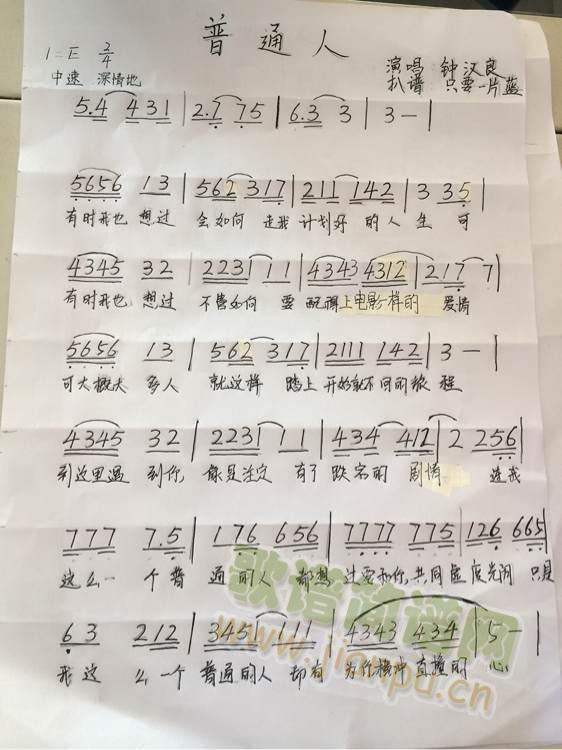 普通人
1=E 2/4
演唱:钟汉良
中速 深情地
扒谱 只要一片蓝
5.4 431 | 2.7 75 | 6.3 3 | 3 — |
5656 13 | 562 317 | 211 142 | 3 35 |
有时我也 想过 会如何 走我 计划好 的人 生 可
4345 32 | 2231 11 | 4343 4312 | 217 7 |
有时我也 想过 不管如何 要 配得上电影一样的 爱情
5656 13 | 562 317 | 2111 142 | 3 — |
可大概大 多人 就这样 踏上 开始就不同的旅 程
4345 32 | 2231 11 | 434 412 | 2 256 |
到这里遇 到你 像是注定 有了 跌宕的 剧情 连我
777 7.5 | 176 656 | 7777 775 | 126 665 |
这么一 个普 通的人 都想 过要和你 共同虚 度光阴 只是
6 3 212 | 345 111 | 4343 434 | 5 — |
我这 么一个 普通的人 却有 为你横冲 直撞的 心
歌谱简谱网
www.jianpu.cn